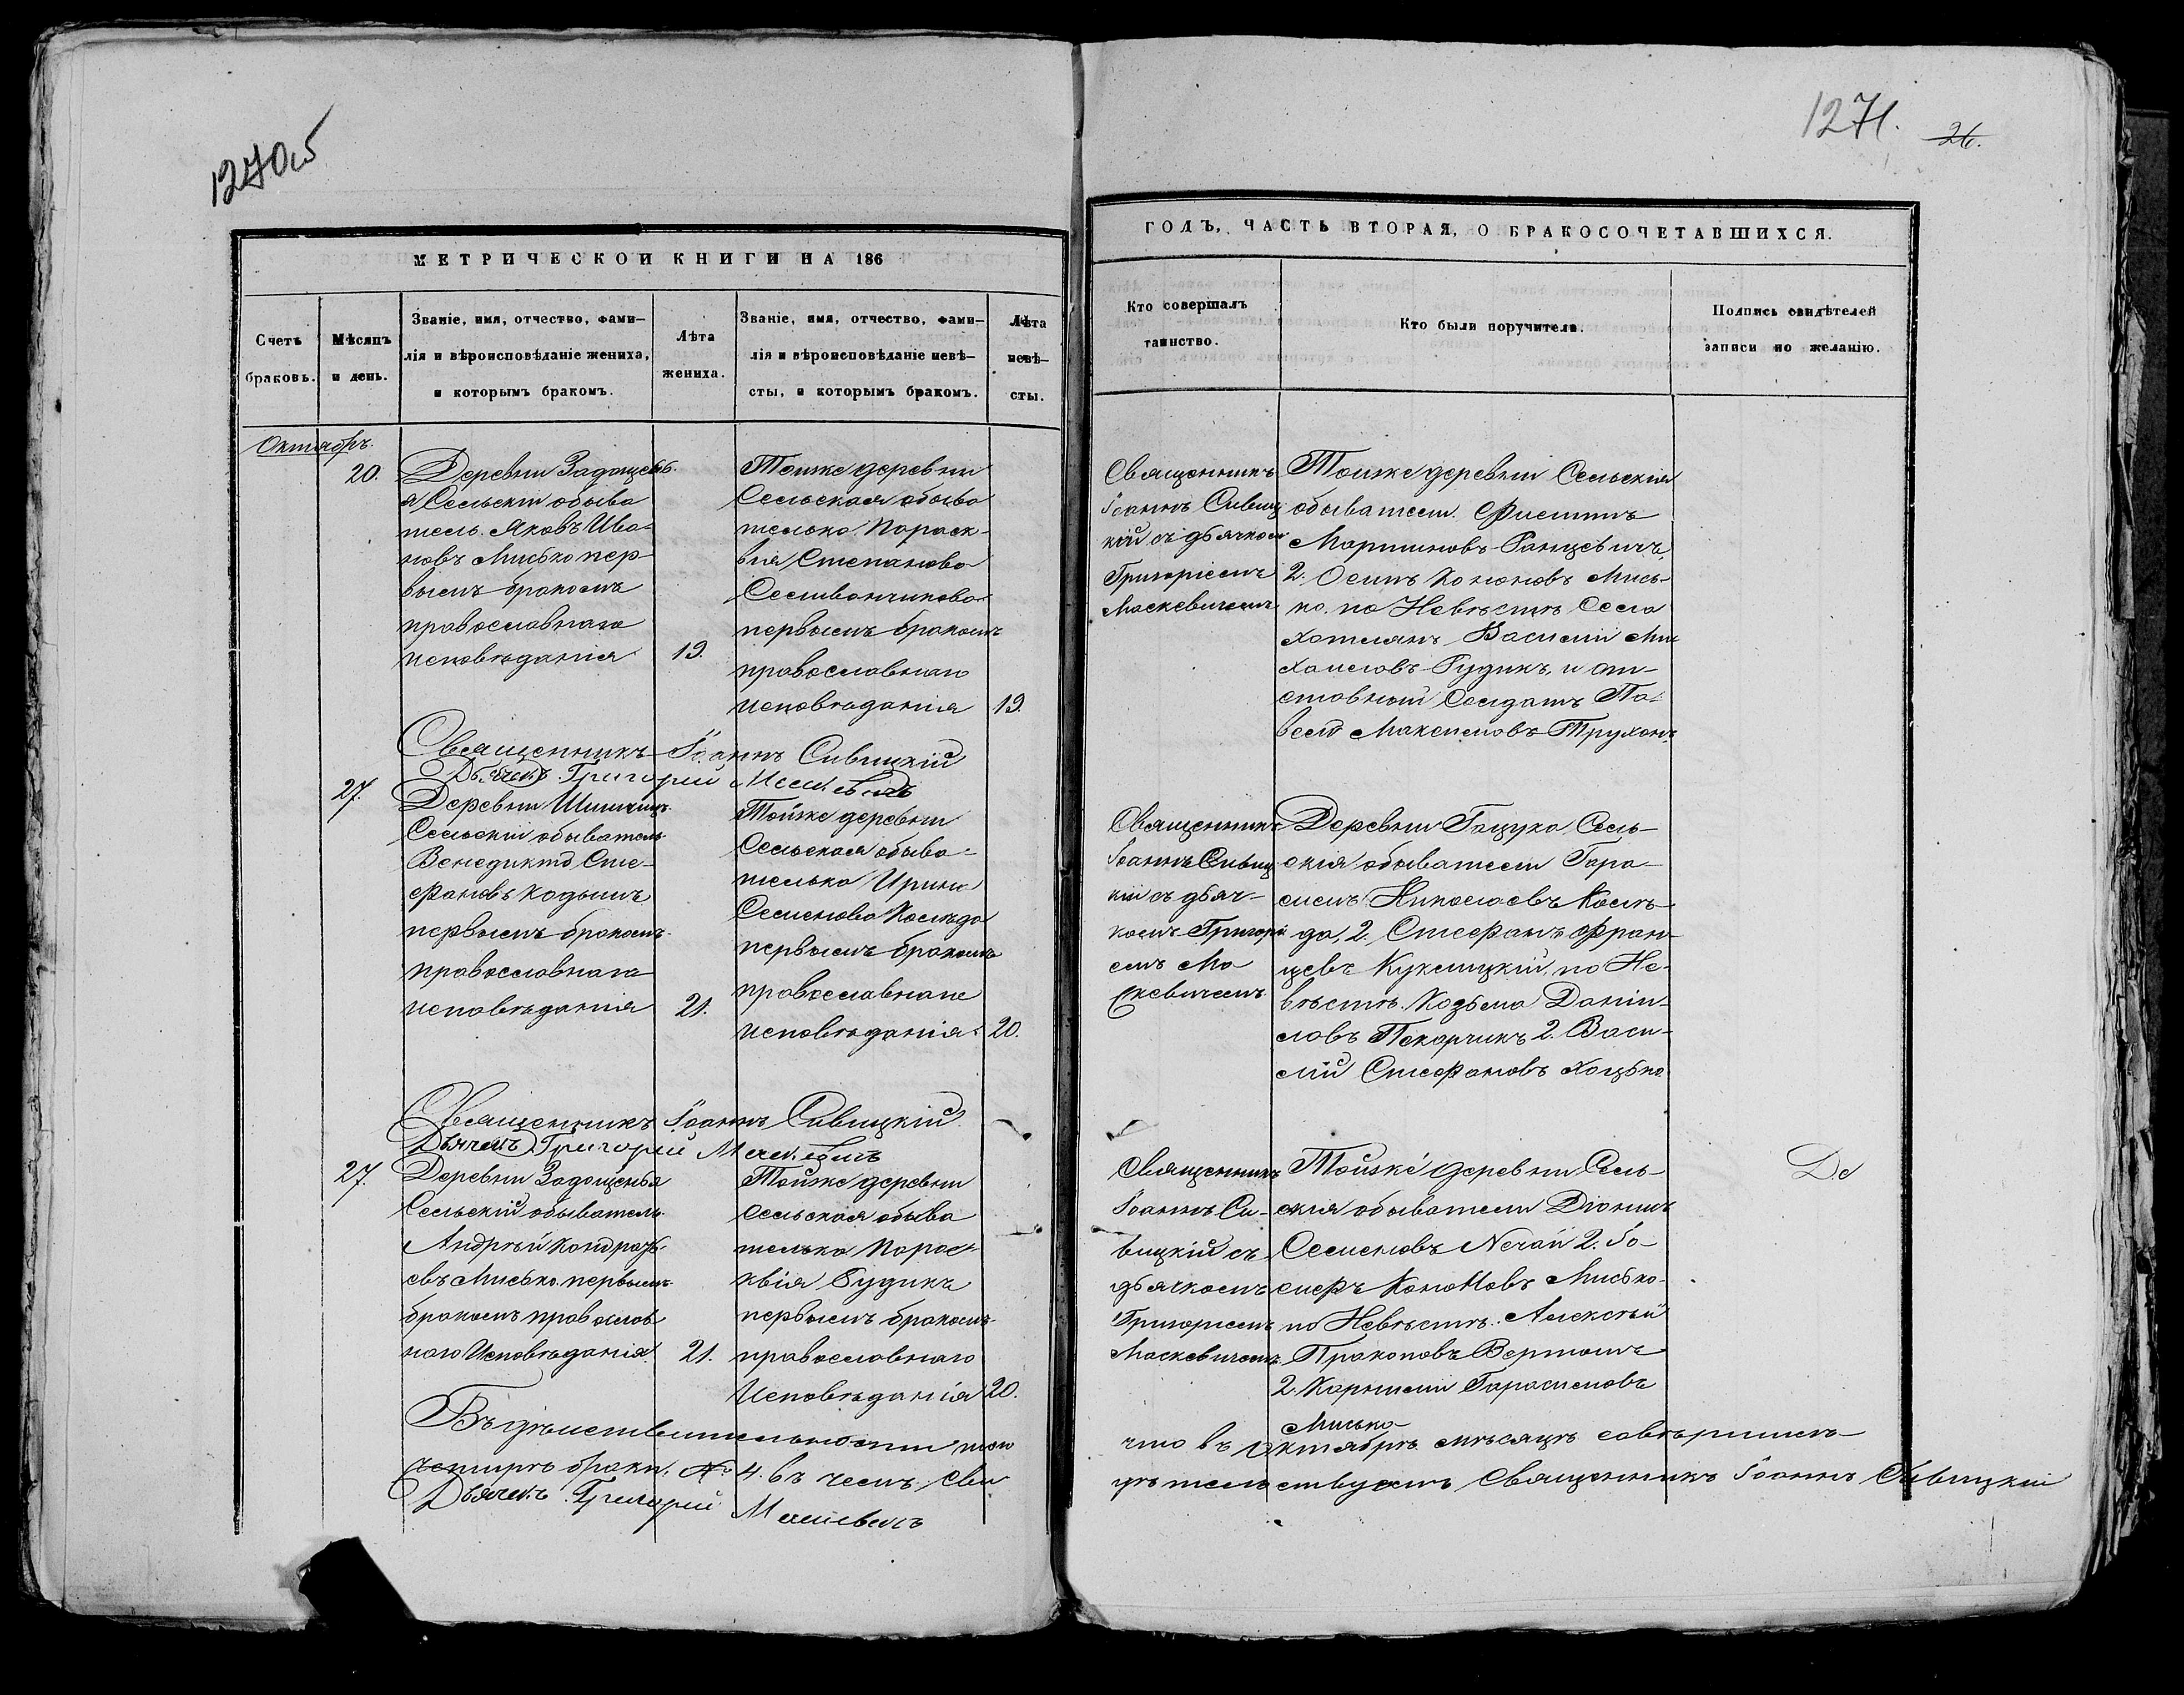 1270об
МЕТРИЧЕСКОЙ КНИГИ НА 186
Счетъ браковъ.
Мѣсяцъ и день.
Званіе, имя, отчество, фами-
лія и вѣроисповѣданіе жениха,
и которымъ бракомъ.
Лѣта
жениха.
Званіе, имя, отчество, фами-
лія и вѣроисповѣданіе невѣ-
сты, и которымъ бракомъ.
Лѣта
невѣ-
сты.
Октябрь.
20.
Деревни Задощенья
Сельскій обыва
тель Яковъ Ива-
новъ Мисько пер-
вымъ бракомъ
православнаго
исповѣданія
19.
Тойже деревни
Сельская обыва
телька Параск-
вия Степанова
Селивончикова
первымъ бракомъ
православнаго
исповѣданія
19.
Священникъ Іоаннъ Сивицкій
Дьячекъ Григорий Маскевичъ
27.
Деревни
Сельскій обыватель
Венедиктъ Сте-
фановъ Кадышъ
первымъ бракомъ
православнаго
исповѣданія
21.
Тойже деревни
Сельская обыва-
телька Ирина
Семенова Коляда
первымъ бракомъ
православнаго
исповѣданія
20.
Священникъ Іоаннъ Сивицкій
Дьячекъ Григорий Маскевичъ
27.
Деревни Задощенья
Сельскій обыватель
Андрѣй Кондрать-
евъ Мисько первымъ
бракомъ православ
наго Исповѣданія
21.
Тойже деревни
Сельская обыва
телька Парас-
квія Рудикъ
первымъ бракомъ
православнаго
Исповѣданія
20.
Въ дѣиствительности того
четыре браки, № 4. въ чемъ сви
Дьячекъ Григорий Маскевичъ
1271.
26.
ГОДЪ, ЧАСТЬ ВТОРАЯ, О БРАКОСОЧЕТАВШИХСЯ.
Кто совершалъ
таинство.
Кто были поручители.
Подпись свидѣтелей
записи по желанію.
Священникъ
Іоаннъ Сивиц
кій съ дьячком
Григоріемъ
Маскевичемъ
Тойже деревни Сельскія
обыватели
Мартиновъ Ранцевичъ,
2. Осипъ Кононовъ Мись-
ко. по Невѣстѣ Села
Хотлянъ Василій Ми
хаиловъ Рудикъ, и от-
ставной Солдатъ Па-
велъ Максимовъ Труханъ
Священникъ
Іоаннъ Сивиц
кій съ дьяч-
комъ Григорі
емъ Ма
скевичемъ
Деревни Гацука, Сель-
скія обыватели Гара-
симъ Николаевъ Коля-
да, 2. Стефанъ Фран-
цевъ Куклицкій, по Не-
вѣстѣ. Козьма Даніи-
ловъ Пекарчикъ 2. Васи-
лій Стефановъ Хоцько
Священникъ
Іоаннъ Си-
вицкій съ
дьячкомъ
Григоріемъ
Маскевичемъ
Тойже деревни Сель-
скія обыватели Діонисъ
Семеновъ Нечай 2. Іо-
сифъ Кононовъ Мисько
по Невѣстѣ. Алексѣй
Пракоповъ
2. Карнилій Гарасимовъ
Мисько
Де
что въ Октябрѣ мѣсяцѣ совѣршилъ
дѣтельствуемъ Священникъ Іоаннъ Сивицкій